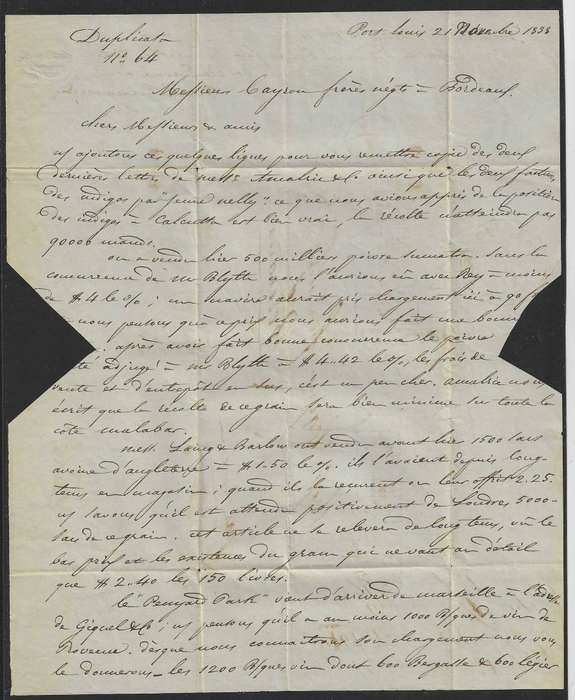 Duplicata Port Louis 21 Novembre 1838
N° 64
Messieurs Cayrou frères négts = Bordeaux.
chers Messieurs & amis
ns ajoutons ces quelques lignes pour vous remettre copie des deux
dernières lettres de mess. Amalric & Co ainsi que les deux factures
des indigos par "jeune nelly" ce que nous avions appris de la position
des indigos = Calcutta est bien vrai, la récolte n'atteindra pas
90000 mands.
on a vendu hier 500 milliers poivre Sumatra. Sans la
concurrence de Mr Blyth nous l'aurions eu avec Rey = moins
de $4 le %; un navire aurait pris chargement ici à 90 f
nous pensons qu'à ce prix nous aurions fait une bonne
; après avoir fait bonne concurrence le poivre
été adjugé = Mr Blyth = $4..42 le %, les frais de
vente et d'entrepôt en sus, c'est un peu cher. Amalric nous
écrit que la récolte de ce grain sera bien minime sur toute la
côte malabar.
mess. Laing & Barlow ont vendu avant hier 1500 sacs
avoine d'angleterre = $1.50 le %. ils l'avaient depuis long-
tems en magasin; quand ils la reçurent on leur offrit 2.25.
ns savons qu'il est attendu positivement de Londres 5000
sacs de ce grain. cet article ne se relevera de longtems, vu le
bas prix et les existences du gram qui ne vaut au détail
que $2..40 les 150 livres.
le "Penyard Park" vient d'arriver de marseille = l'adresse
de Giquel & Co; ns pensons qu'il a au moins 1000 B/ques de vin de
Provence. desque nous connaitrons son chargement nous vous
le donnerons - les 1200 B/ques vin dont 600 Bergasse & 600 léger